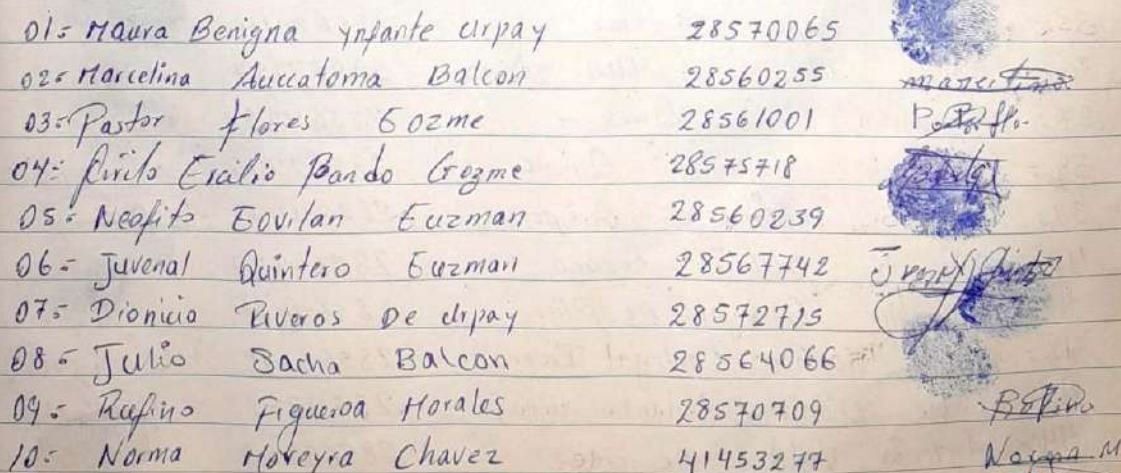 01= Maura Benigna Ynfante Urpay 28570065
02= Marcelina Auccatoma Balcon 28560255 Marcelina
03= Pastor Flores Gozme 28561001
04= Cirilo Ecilio Pando Gozme 28575718
05= Neofito Govilan Guzman 28560239
06= Juvenal Quintero Guzman 28567742
07= Dionicia Riveros De Urpay 28572715
08= Julio Sacha Balcon 28564066
09= Rufino Figueroa Morales 28570709
10= Norma Moreyra Chavez 41453277 Norma M